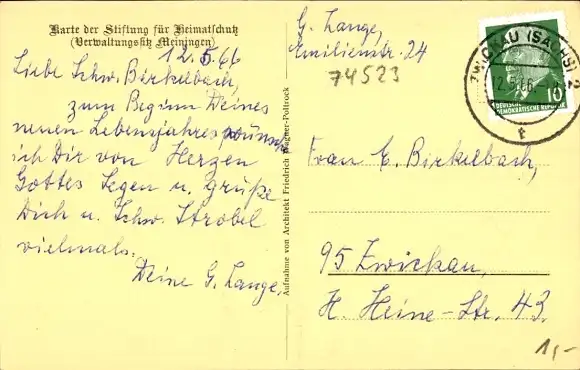 Karte der Stiftung für Heimatschutz
(Verwaltungssitz Meiningen)
12.5.66
Liebe Schw. Birkelbach,
zum Beginn Deines
neuen Lebensjahres wünsche
ich Dir von Herzen
Gottes Segen u. grüße
Dich u. Schw. Strobel
vielmals.
Deine G. Lange.
Aufnahme von Architekt Friedrich Wagner-Poltrock
G. Lange,
Emilienstr. 24
74523
ZWICKAU (SACHS) 2
12.5.66
f
10
DEUTSCHE
DEMOKRATISCHE REPUBLIK
Frau E. Birkelbach,
95 Zwickau,
H. Heine-Str. 43.
1,-